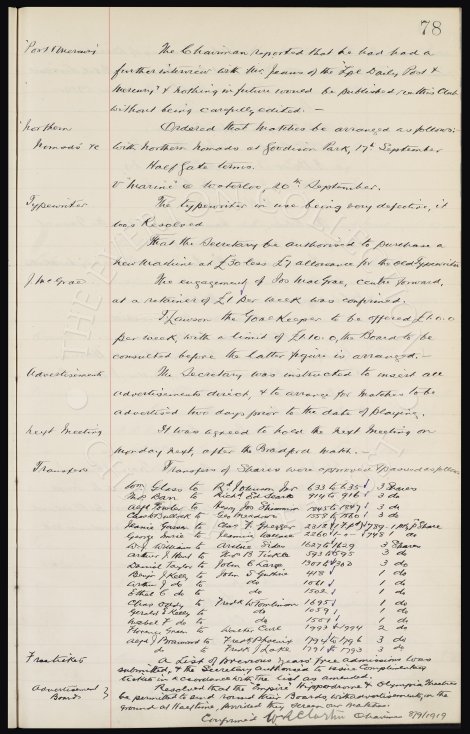 78
"Post & Mercury"
The Chairman reported that he had had a
further interview with Mr. Jeans of the "Lpl Daily Post &
Mercury" & nothing in future would be published re this Club
without being carefully edited. —
Northern
Nomads &c
Ordered that Matches be arranged as follows:-
with Northern Nomads at Goodison Park, 17th September
Half Gate terms.
V "Marine" @ Waterloo, 20th September.
Typewriter
The typewriter in use being very defective, it
was Resolved
That the Secretary be authorised to purchase a
new Machine at £30 less £7 allowance for the old Typewriter
J. McGrae
The engagement of Jos MacGrae, centre forward,
at a retainer of £1 per week was confirmed.
F Lawson the Goal Keeper to be offered £1.0.0
per week, with a limit of £1.10.0, the Board to be
consulted before the latter figure is arranged. —
Advertisements
The Secretary was instructed to insert all
advertisements direct, & to arrange for matches to be
advertised two days prior to the date of playing.
Next Meeting
It was agreed to hold the next Meeting on
Monday next, after the Bradford Match. —
Transfers
Transfers of Shares were approved & passed as follows
Wm Glass to Rd Johnson Jnr 633 to 635 3 Shares
Barr to Richd Ed Searle 914 to 916 3 do
Alf Fowler to Henry Jos Skinner 1845 to 1847 3 do
to 1558 to 1560 3 do
to
George to Jeannie Wallace 2260 1 do
to Archie 1627 to 1629 3 Shares
Arthur J. to Tickle 593 to 595 3 do
Daniel Taylor to John E Large 3 do
Benjn J Kelly to John S Guthrie 418 1 do
Arthur J do to do 1061 1 do
Ethel E do to do 1502 1 do
Chas to Fredk W Tomlinson 1695 1 do
Gerald E Kelly to do 1059 1 do
Isabel F do to do 1 do
Florence Green to 1993 & 1994 2 do
Alf J to Fredk P 1794 to 1796 3 do
do to Fredk J Lake 1791 to 1793 3 do
Free tickets
A List of Previous Years Free Admissions was
submitted, & the Secretary Authorised to issue Complimentary
tickets in accordance with the list as amended.
Advertisement
Boards
Resolved that the "Empire" Hippodrome & Olympia Theatres
be permitted to send round their Boards, with advertisements, on the
ground at Half time, provided they screen our matches.
Confirmed W R Clayton Chairman 8/9/1919